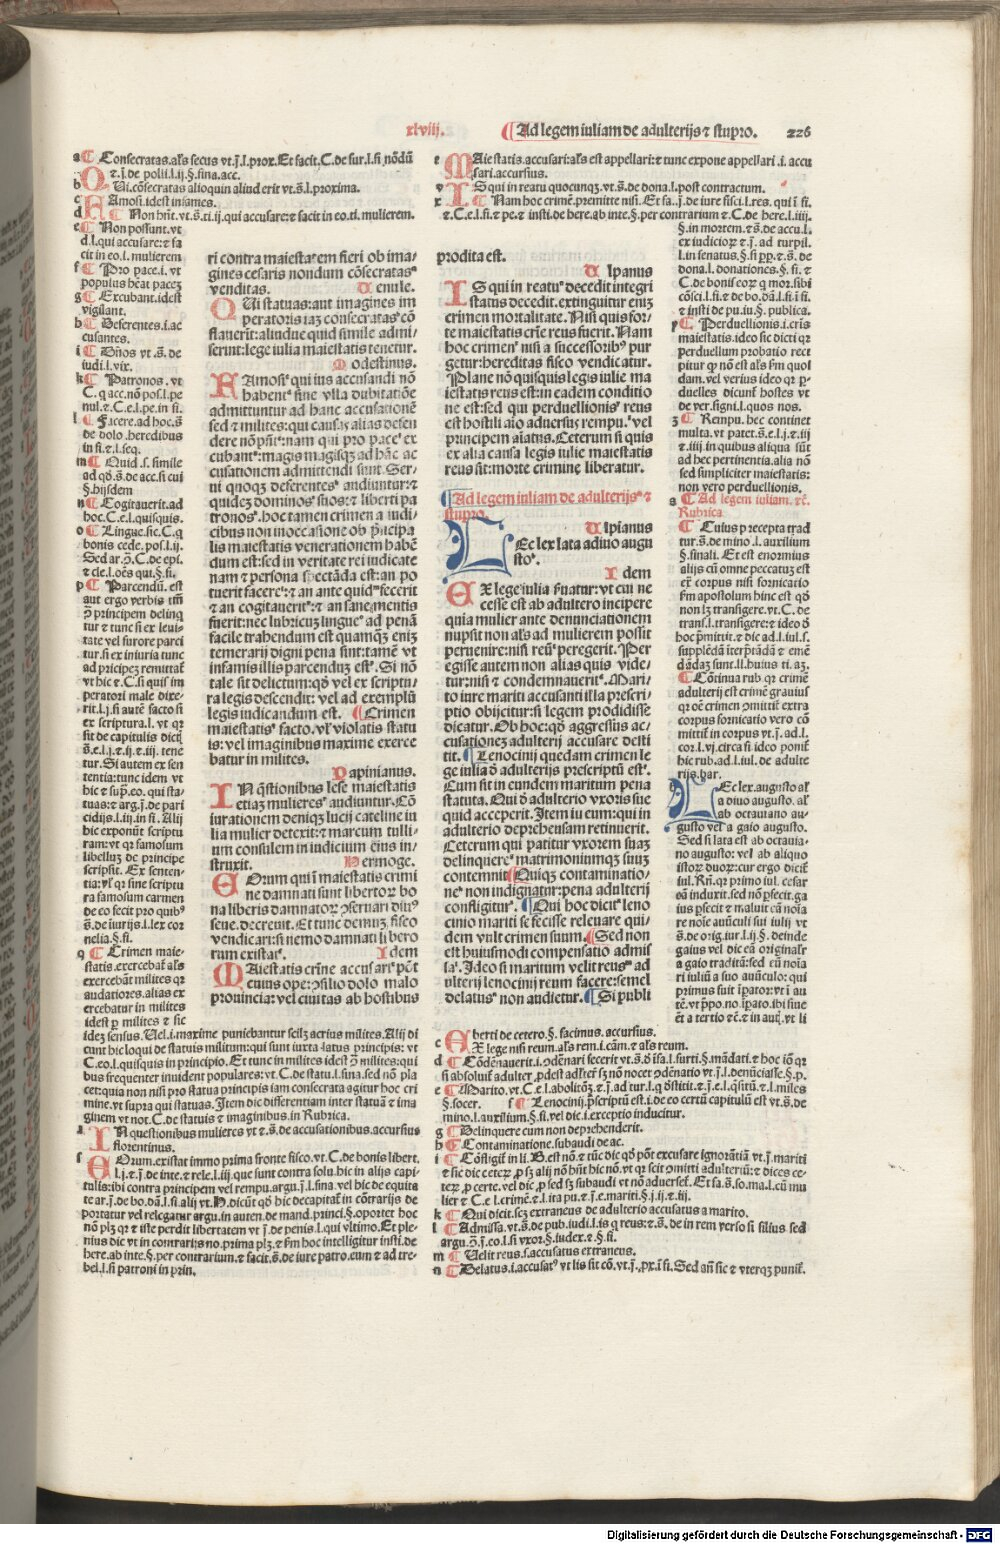 xlviij.
¶ Ad legem iuliam de adulterijs ⁊ stupro. 226
a ¶ Consecratas.al's secus vt.j.l.prox.Et facit.C.de fur.l.fi nōdū
⁊.j.de polii.l.ij.§.fina.acc.
b Qui.cōsecratas alioquin aliud erit vt.s.l.proxima.
c Famosi.idest infames.
d ¶ Non hn̄t.vt.s.ti.ij.qui accusare:⁊ facit in eo.ti. mulierem.
e ¶ Non possunt.vt
d.l.qui accusare:⁊ fa
cit in eo.l. mulierem
f ¶ Pro pace.i. vt
populus beat pacez
g ¶ Excubant.idest
vigilant.
h ¶ Deferentes.i.ac
cusantes.
i ¶ Dn̄os vt .s. de
iudi.l.vix.
k ¶ Patronos . vt
C. q acc.nō pos.l.pe
nul.⁊.C.e.l.pe.in fi.
l ¶ Facere.ad hoc.s
de dolo .heredibus
in fi.⁊.l.seq.
m ¶ Quid .s. simile
ad qd.s.de acc.si cui
§.hijsdem
n ¶ Cogitauerit.ad
hoc.C.e.l.quisquis.
o ¶ Lingue.sic.C.q
bonis cede.pos.l.ij.
Sed ar.ꝯ.C.de epi.
⁊ cle.l.oēs qui.§.fi.
p ¶ Parcendū. est
aut ergo verbis tm̄
ꝯ principem delinq
tur ⁊ tunc si ex leui-
tate vel furore parci
tur.si ex iniuria tunc
ad pricipez remittat
vt hic ⁊.C.si quis im
peratori male dixe-
rit.l.j.si autē facto si
ex scriptura.l. vt qr
fit de capitulis dict
s.e.l.j.⁊.ij.⁊.iij. tene
tur.Si autem ex sen
tentia:tunc idem vt
hic ⁊ sup.eo. qui sta-
tuas:⁊ arg.j.de pari
cidijs.l.iij.in fi. Alij
hic exponūt scriptu
ram:vt qr famosum
libelluz de principe
scripsit. Ex senten-
tia:vl' qr sine scriptu
ra famosum carmen
de eo fecit pro quib'
s.de iurijs.l.lex cor
nelia.§.fi.
q ¶ Crimen maie-
statis.exercebat al's
exercebāt milites qr
audatiores.alias ex
ercebatur in milites
idest p milites ⁊ sic
idez sensus.Uel.i.maxime puniebantur scilz acrius milites.Alij di
cunt hic loqui de statuis militum:qui sunt iuxta latus principis: vt
C.eo.l.quisquis in principio.Et tunc in milites idest ꝯ milites:qui
bus frequenter inuident populares:vt.C.de statu.l.fina.sed nō pla
cet:quia non nisi pro statua principis iam consecrata agitur hoc cri
mine.vt supra qui statuas.Item dic differentiam inter statuā ⁊ ima
ginem vt not.C.de statuis ⁊ imaginibus.in Rubrica.
In questionibus mulieres vt ⁊.s.de accusationibus.accursius
florentinus.
Eorum.existat immo prima fronte fisco.vt.C.de bonis libert.
l.j.⁊.j.de inte.⁊ rele.l.iij.que sunt contra solu.hic in alijs capi
tulis:ibi contra principem vel rempu.argu.j.l.fina.vel hic de equita
te ar.j.de bo.dā.l.si alij vt.
portatur vel relegatur argu.in auten.de mand.princi.§.oportet hoc
nō plz qr ⁊ iste perdit libertatem vt j.de penis.l.qui vltimo.Et ple-
nius dic vt in contrarijs no.prima plz.⁊ fm hoc intelligitur insti.de
here.ab inte.§.per contrarium.⁊ facit.s.de iure patro.eum ⁊ ad tre-
bel.l.si patroni in prin.
ri contra maiestatem fieri ob ima-
gines cesaris nondum cōsecratas
venditas. Uenule.
Qui statuas:aut imagines im
peratoris iaz consecratas cō
flauerit:aliudue quid simile admi-
serint:lege iulia maiestatis tenetur.
Modestinus.
Famosi qui ius accusandi nō
habent sine vlla dubitatiōe
admittuntur ad hanc accusationē
sed ⁊ milites:qui causas alias defen
dere nō pn̄t:nam qui pro pace ex
cubant:magis magisqz ad hāc ac
cusationem admittendi sunt. Ser-
ui quoqz deferentes audiuntur:⁊
quidez dominos suos:⁊ liberti pa
tronos.hoc tamen crimen a iudi-
cibus non in occasiōne ob pricipa
lis maiestatis venerationem habē
dum est:sed in veritate rei iudicate
nam ⁊ persona spectāda est:an po
tuerit facere:⁊ an ante quid fecerit
⁊ an cogitauerit:⁊ an sane mentis
fuerit:nec lubricuz lingue ad penā
facile trahendum est quamqz eniz
temerarij digni pena sint:tamē vt
infamis illis parcenduz est. Si nō
tale sit delictum:qd vel ex scriptu-
ra legis descendit: vel ad exemplū
legis iudicandum est. ¶ Crimen
maiestatis facto.vl' violatis statu
is: vel imaginibus maxime exerce
batur in milites.
Papinianus.
In qstionibus lese maiestatis
etiaz mulieres audiuntur.Cō
iurationem deniqz lucij cateline iu
lia mulier detexit:⁊ marcum tulli-
um consulem in iudicium eius in-
struxit. Hermoge.
Eorum qui ī maiestatis crimi
ne damnati sunt libertoꝝ bo
na liberis damnatoꝝ ꝯseruari diu'
seue.decreuit.Et tunc demuz fisco
vendicari:si nemo damnati libero
rum existat. Idem
Maiestatis crīne accusari pōt
cuius ope:ꝯsilio dolo malo
prouincia:vel ciuitas ab hostibus
t Maiestatis.accusari:al's est appellari:⁊ tunc expone appellari .i. accu
sari.accursius.
v IS qui in reatu quocunqz.vt.s.de dona.l.post contractum.
x ¶ Nam hoc crimē.premitte nisi. Et fa..j.de iure fisci.l.res. qui ī fi.
⁊.C.e.l.fi.⁊ pe.⁊ insti.de here.ab inte.§.per contrarium ⁊.C.de here.l.iiij.
prodita est.
Ulpianus
IS qui in reatu decedit integri
status decedit.extinguitur eniz
crimen mortalitate. Nisi quis for-
te maiestatis crīe reus fuerit.Nam
hoc crimen nisi a successorib' pur
getur:hereditas fisco vendicatur.
Plane nō quisquis legis iulie ma
iestatis reus est:in eadem conditio
ne est:sed qui perduellionis reus
est hostili aīo aduersus rempu.vel
principem aīatus. Ceterum si quis
ex alia causa legis iulie maiestatis
reus sit:morte crimine liberatur.
¶ Ad legem iuliam de adulterijs ⁊
stupro.
Ulpianus
Hec lex lata a diuo augu
sto.
Idem
Ex lege iulia fuatur:vt cui ne
cesse est ab adultero incipere
quia mulier ante denunciationem
nupsit non al's ad mulierem possit
peruenire:nisi reū peregerit. Per
egisse autem non alias quis vide-
tur:nisi ⁊ condemnauerit. Mari-
to iure mariti accusanti illa prescri-
ptio obijcitur:si legem prodidisse
dicatur. Ob hoc:qd aggressus ac-
cusationez adulterij accusare desti
tit. ¶ Lenocinij quedam crimen le
ge iulia ꝺ adulterijs prescriptū est.
Cum sit in eundem maritum pena
statuta. Qui ꝺ adulterio vxoris sue
quid acceperit. Item iu eum:qui in
adulterio deprehensam retinuerit.
Ceterum qui patitur vxorem suaz
delinquere matrimoniumqz suuz
contemnit ¶ Quiqz contaminatio-
ne non indignatur:pena adulterij
confligitur. ¶ Qui hoc dicit leno
cinio mariti se fecisse releuare qui-
dem vult crimen suum. ¶ Sed non
est huiusmodi compensatio admil
sa. Ideo si maritum velit reus ad
ulterij lenocinij reum facere:semel
delatus non audietur. ¶ Si publi
§.in mortem.⁊.s.de accu.l.
ex iudicioꝝ ⁊.j. ad turpil.
l.in senatus.§.si pp.⁊.s. de
dona.l. donationes.§. fi. ⁊
C.de bonis eoꝝ q moꝝ.sibi
cōsci.l.fi.⁊ de bo.dā.l.fi ī fi.
⁊ insti de pu.iu.§. publica.
y ¶ Perduellionis.i.cris
maiestatis.ideo sic dicti qr
perduellum probatio reci
pitur qp nō est al's fm quol
dam.vel verius ideo qr p-
duelles dicunt hostes vt
de ver.signi.l.quos nos.
z ¶ Rempu. hec continet
multa.vt patet.s.e.l.j.⁊.iij
⁊.iiij.in quibus aliqua sūt
ad hec pertinentia.alia nō
sed simpliciter maiestatis:
non vero perduellionis.
a ¶ Ad legem iuliam.⁊c.
Rubrica.
¶ Cuius precepta trad
tur.s.de mino.l. auxilium
§.finali. Et est enormius
alijs cū omne peccatuz est
ex corpus nisi fornicatio
fm apostolum hinc est qd
non lz transigere.vt.C. de
trans.l.transigere:⁊ ideo ꝺ
hoc pmittit.⁊ dic ad.l.iul.s.
supplēdā īterptādā ⁊ emē
dādaz sunt.ll.huius ti.az.
¶ Cōtinua rub qr crimē
adulterij est crimē grauius
qr oē crimen ꝯmittit extra
corpus fornicatio vero cō
mittit in corpus vt.j. ad.l.
cor.l.vj.circa fi ideo ponit
hic rub.ad.l.iul.de adulte
rijs.bar.
b Hec lex.augusto al'
a diuo augusto. al'
ab octauiano au-
gusto vel a gaio augusto.
Sed si lata est ab octauia-
no augusto: vel ab aliquo
istoꝝ duoꝝ:cur ergo dicit
iul.Rn̄.qr primo iul. cesar
oā induxit.sed nō pfecit.ga
ius pfecit ⁊ maluit cā noīa
re noīe auūculi sui iulij vt
s.de orig.iur.l.ij.§. deinde
gaius vel dic eā originalr
a gaio traditā:sed cū noīa
ri iuliā a suo auūculo: qui
primus fuit īpator:vt ī au
tē.vt ppo.no.īpato.ibi siue
ēt a tertio ⁊c.⁊ in auq.vt li
berti de cetero.§. facimus. accursius.
c Ex lege nisi reum.al's rem.i.cām.⁊ al's reum.
d ¶ Cōdēnauerit.i.ꝯdēnari fecerit vt.s.ꝺ ifa.l.furti.§.mādati.⁊ hoc iō qr
si absoluit adulter pdest adlter sz nō nocet ꝯdēnatio vt.j.l.denūciasse.§.p.
e ¶ Marito.vt.C.e.l.abolitōz.⁊.j.ad tur.l.q ꝺstitit.⁊.j.e.l.qsitū.⁊.l.miles
§.socer. f ¶ Lenocinij.pscriptū est.i.de eo certū capitulū est vt.s.de
mino.l.auxilium.§.fi.vel dic.i.exceptio inducitur.
g ¶ Delinquere eum non deprehenderit.
h ¶ Contaminatione.subaudi de ac.
i ¶ Cōfligit in li. B.est nō.⁊ tūc dic qd pōt excusare ignorātiā vt.j.mariti
⁊ sic dic ceteꝝ p sz alij nō hn̄t hic nō.vt qr scit ꝯmitti adulteriū:⁊ dices ce-
teꝝ p certe.vel dic p sed sz subaudi vt nō aduerset.Et fa.s.so.ma.l.cū mu
lier ⁊ C.e.l.crimē.⁊ l.ita pu.⁊.j.e.mariti.§.j.ij.⁊.iij.
k ¶ Qui dicit.scz extraneus de adulterio accusatus a marito.
l ¶ Admissa.vt.s.de pub.iudi.l.is q reus:⁊.s.de in rem verso si filius sed
argu.ꝯ.j.eo.l.si vxor.§.iudex.⁊.§.fi.
m ¶ Uelit reus.s.accusatus extraneus.
n ¶ Delatus.i.accusat' vt lis sit cō.vt.j.px.ī fi.Sed an̄ sic ⁊ vterqz punit.
Digitalisierung gefördert durch die Deutsche Forschungsgemeinschaft - DFG